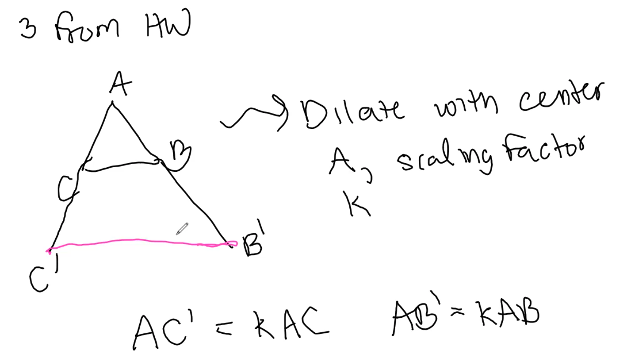 3 from HW
A
Dilate with center
A, scaling factor
K
B
C
B'
C'
AC' = KAC AB' = KAB